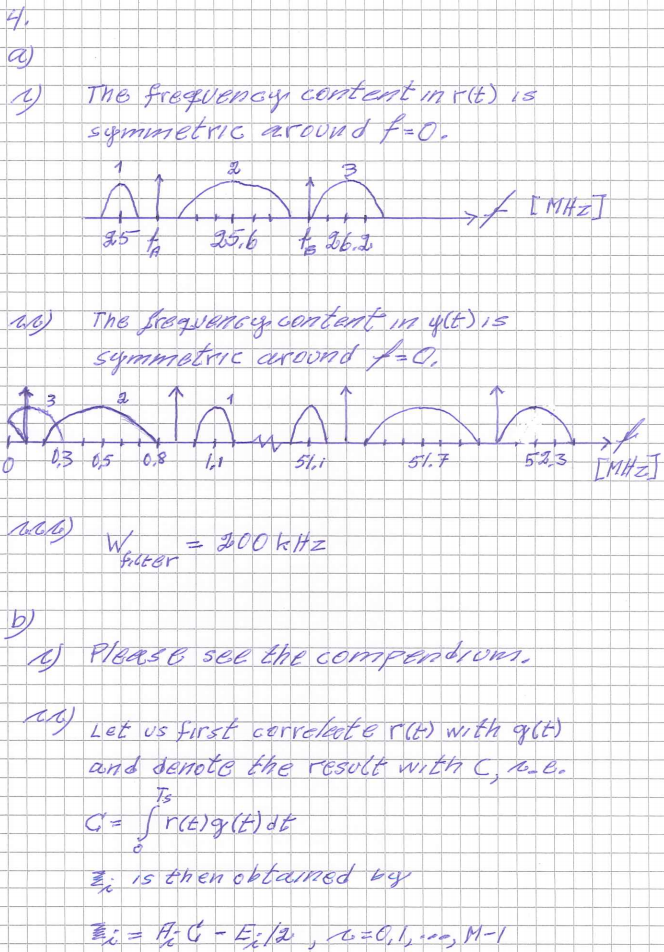 4.
a)
i) The frequency content in r(t) is
symmetric around f=0.
1 2 3
25 f_A 25.6 f_B 26.2 f [MHz]
ii) The frequency content in y(t) is
symmetric around f=0.
3 2 1
0 0,3 0,5 0,8 1,1 51,1 51.7 52,3 f [MHz]
iii) W_filter = 200 kHz
b)
i) Please see the compendium.
ii) Let us first correlate r(t) with g(t)
and denote the result with C, i.e.
C = ∫_0^Ts r(t)g(t)dt
z_i is then obtained by
z_i = A_i C - E_i/2 , i=0,1,...,M-1